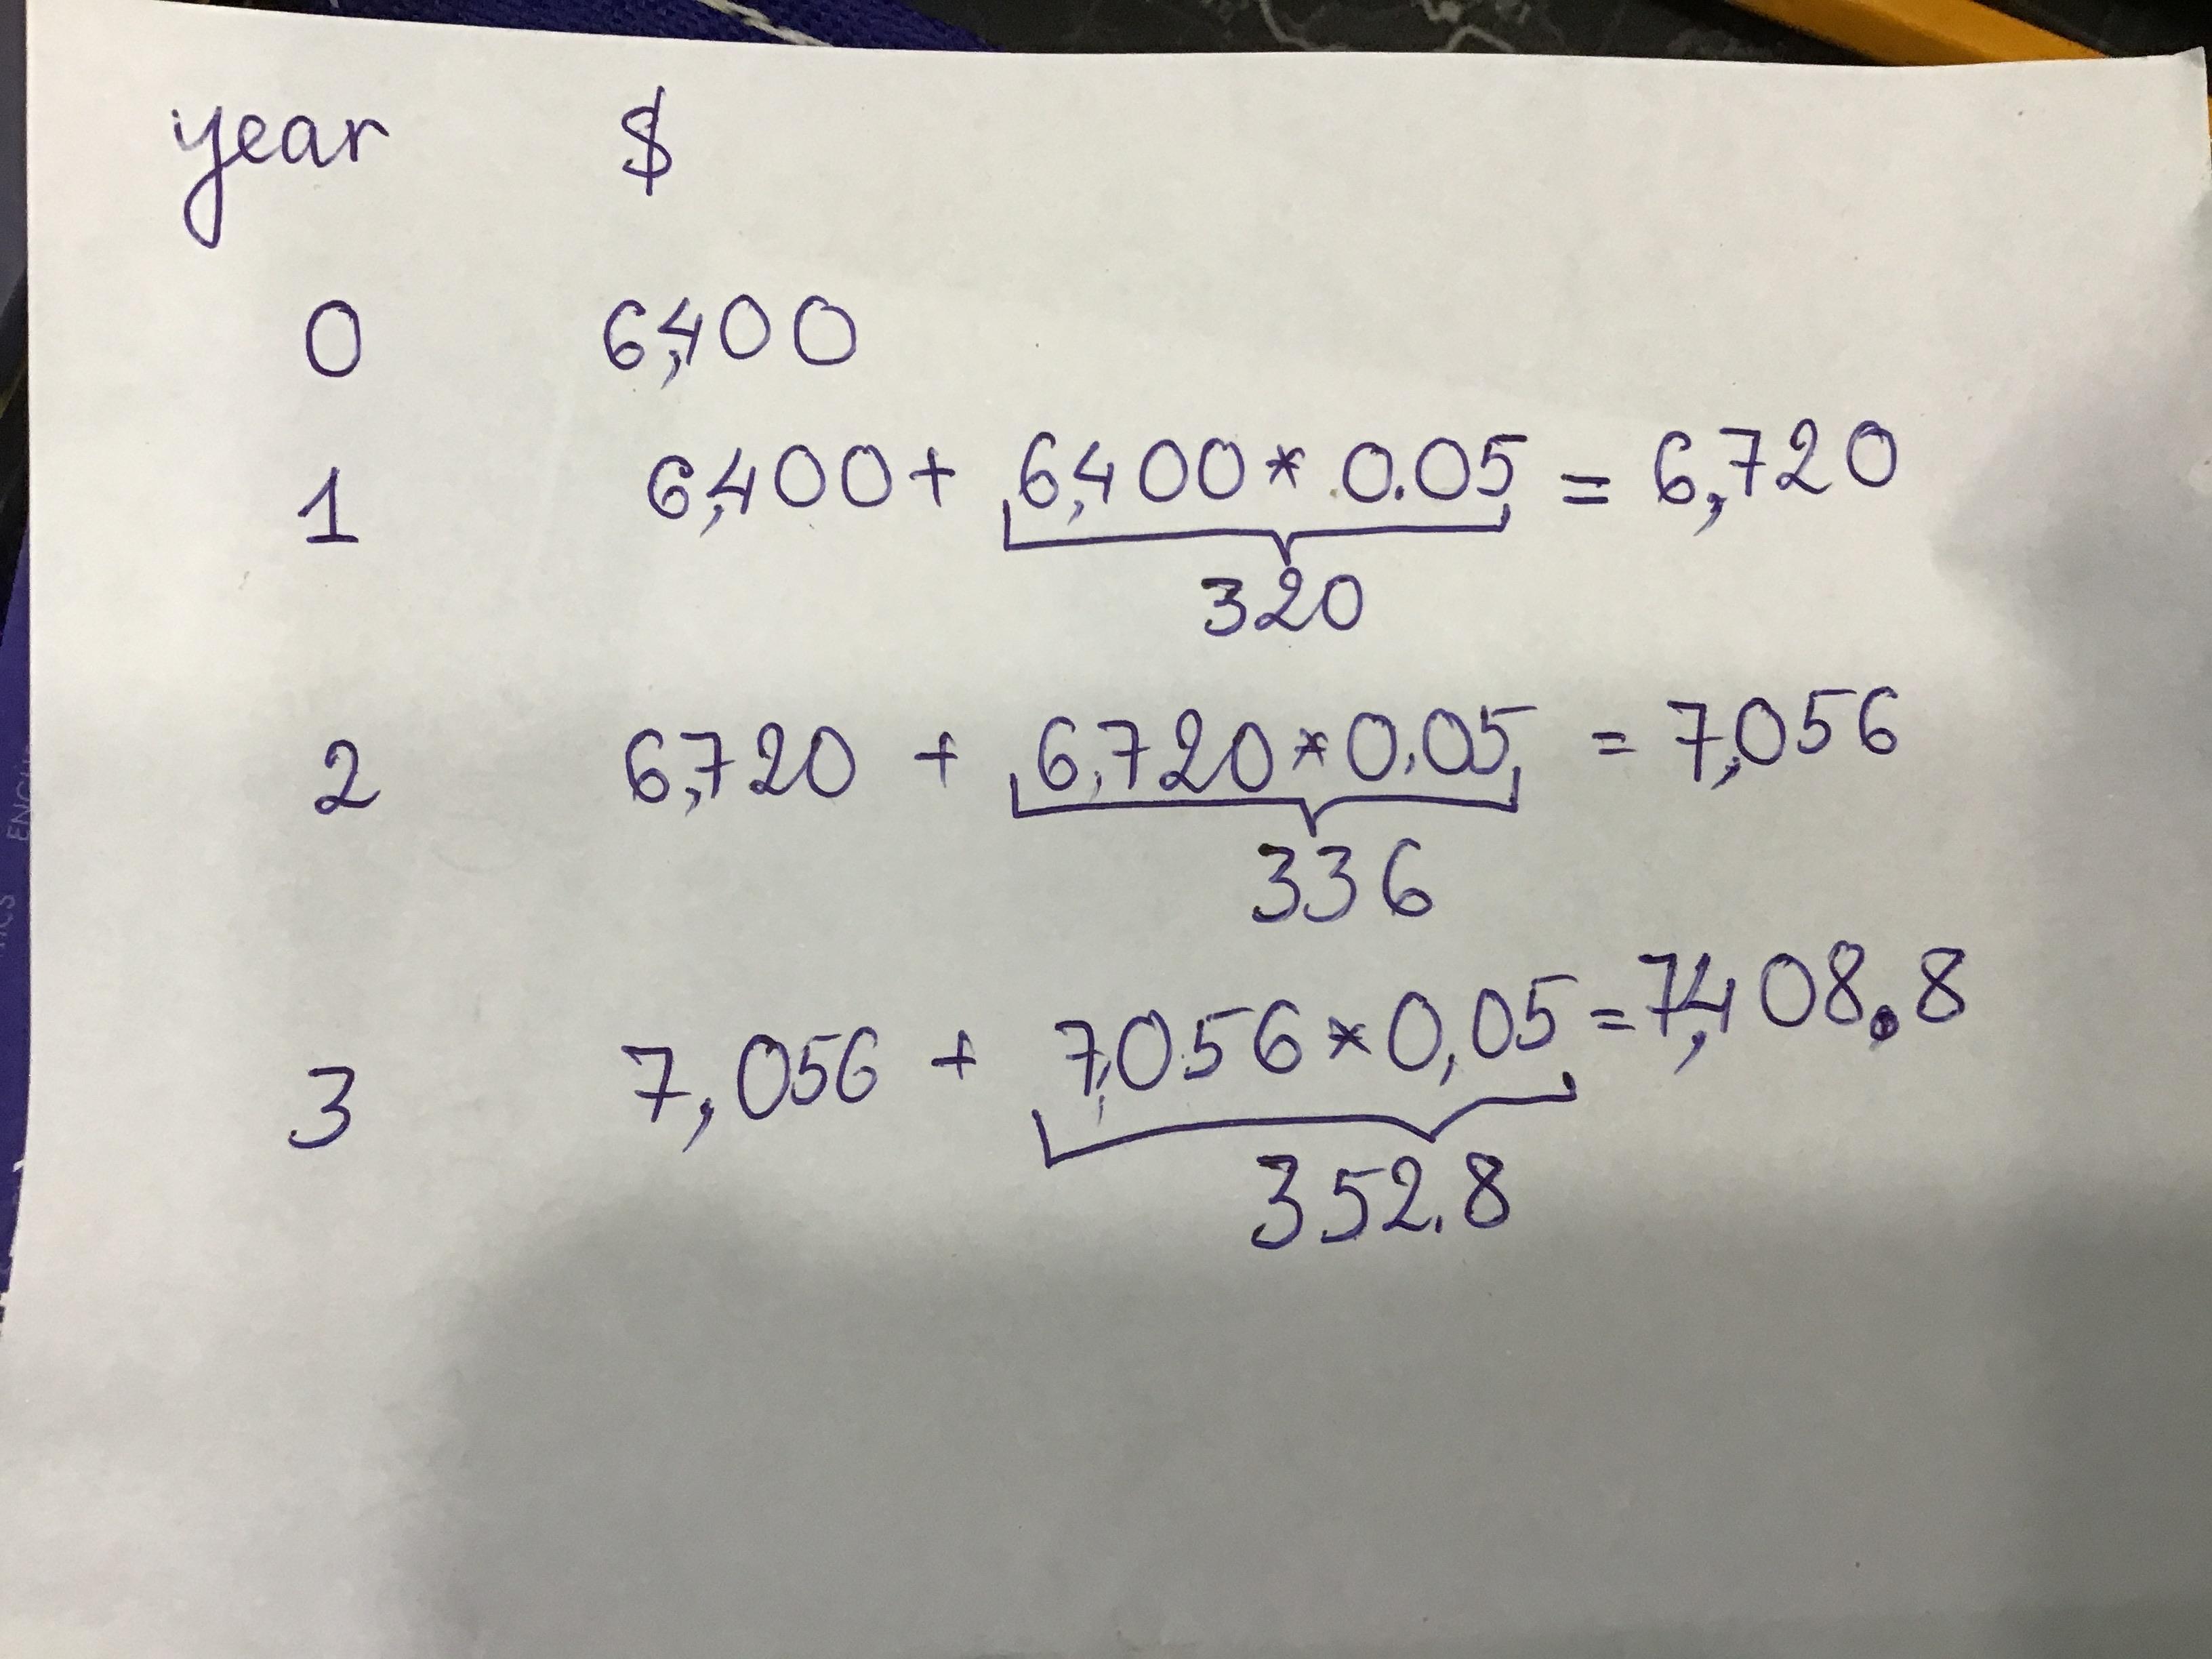 year $
0 6,400
1 6,400 + 6,400 * 0.05 = 6,720
320
2 6,720 + 6,720 * 0.05 = 7,056
336
3 7,056 + 7,056 * 0,05 = 7,408.8
352.8